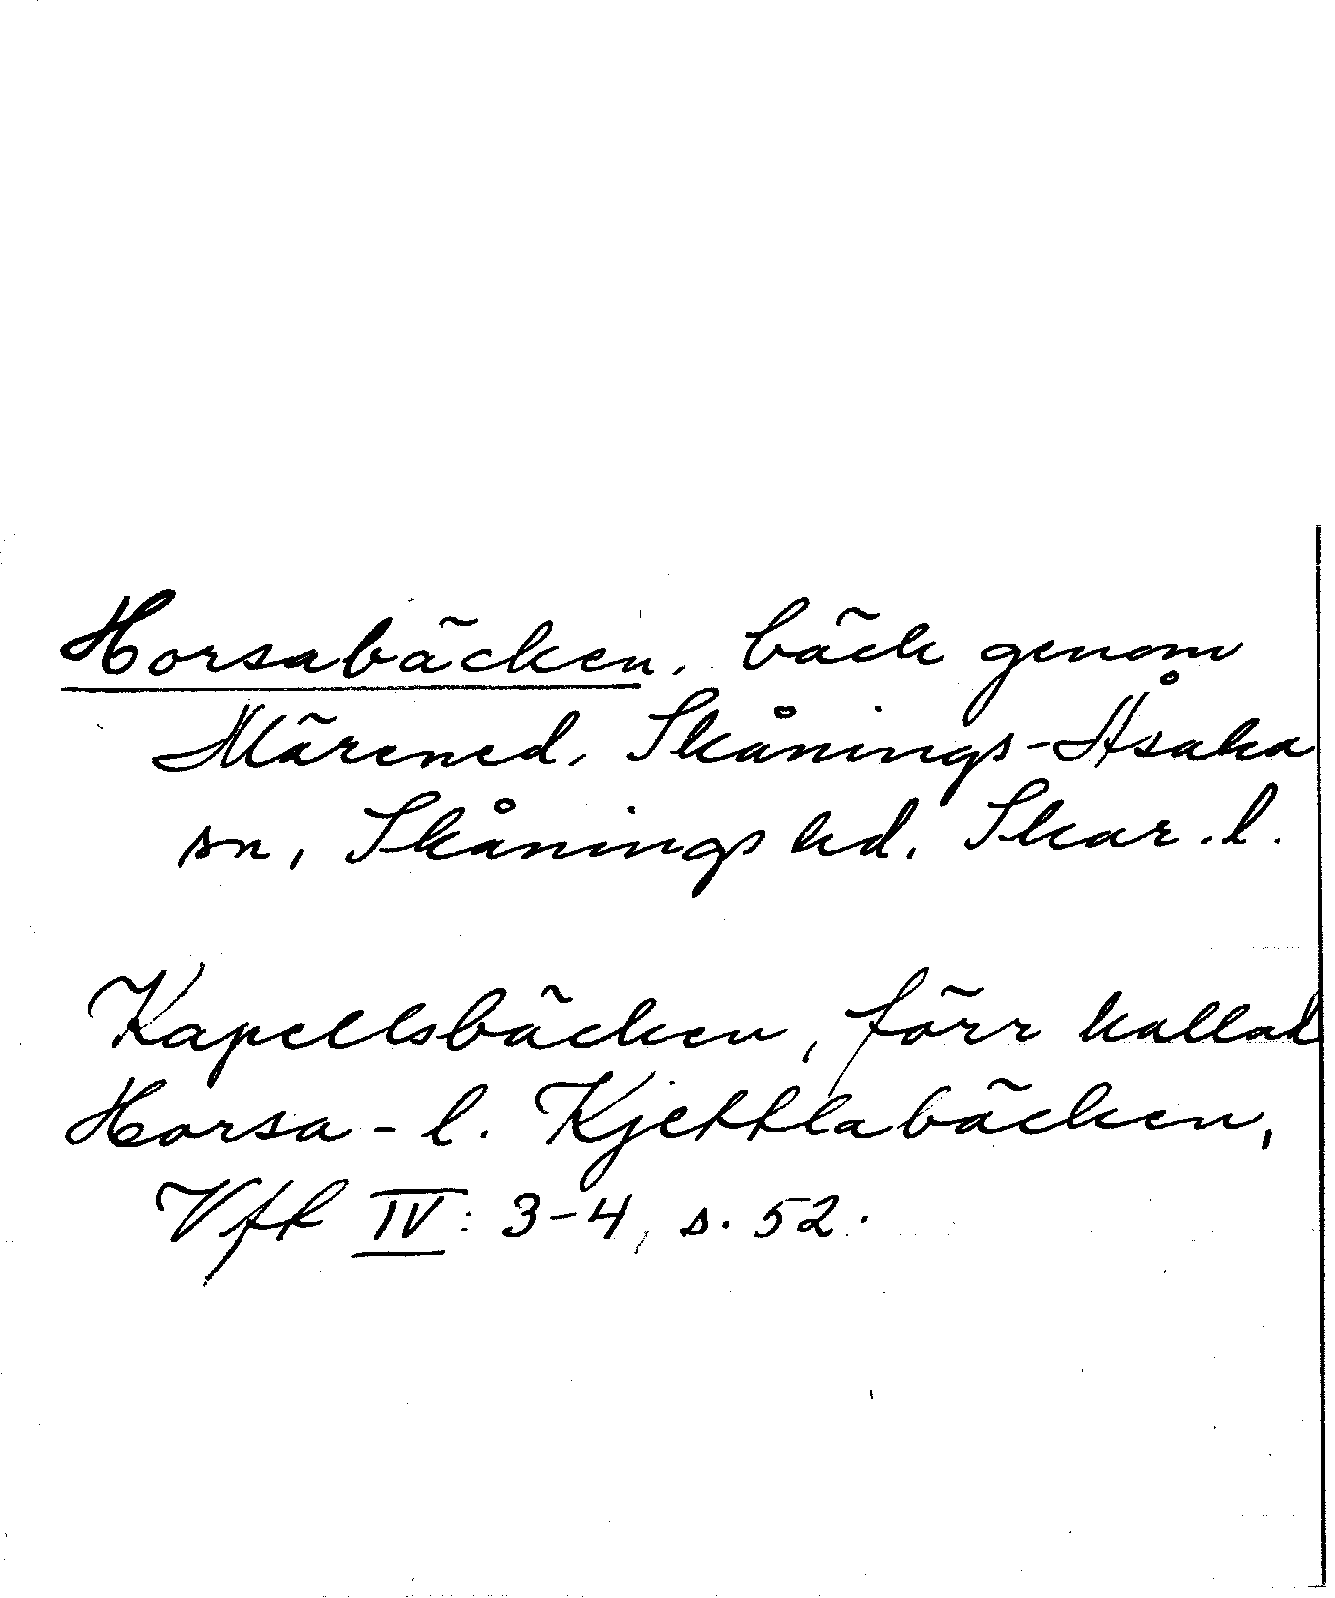 Horsabäcken, bäck genom
Märened, Skånings-Åsaka
sn, Skånings hd, Skar. l.
Kapellsbäcken, förr kallad
Horsa- l. Kjettlabäcken,
Vft IV: 3-4, s. 52.